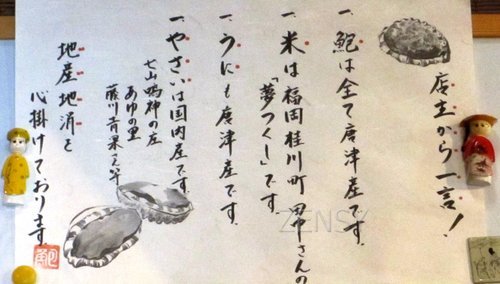 店主から一言！
一、鮑は全て唐津産です。
一、米は福岡桂川町 田中さんの
「夢つくし」です。
一、うにも唐津産です。
一、やさいは国内産です。
七山鳴神の庄
あゆの里
藤川青果
地産地消を
心掛けております。
鮑
ZENS